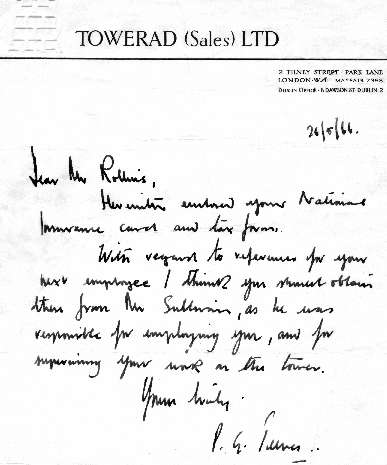 TOWERAD (Sales) LTD
2 TILNEY STREET · PARK LANE
LONDON · W.1. MAYFAIR
DUBLIN OFFICE · DAWSON ST · DUBLIN 2
26/5/66.
Dear Mr Rollins,
Herewith enclosed your National
Insurance card and tax forms.
With regard to references for your
next employee I think you should obtain
them from Mr Sullivan, as he was
responsible for employing you, and for
supervising your work on the tower.
Yours truly.
P. G.